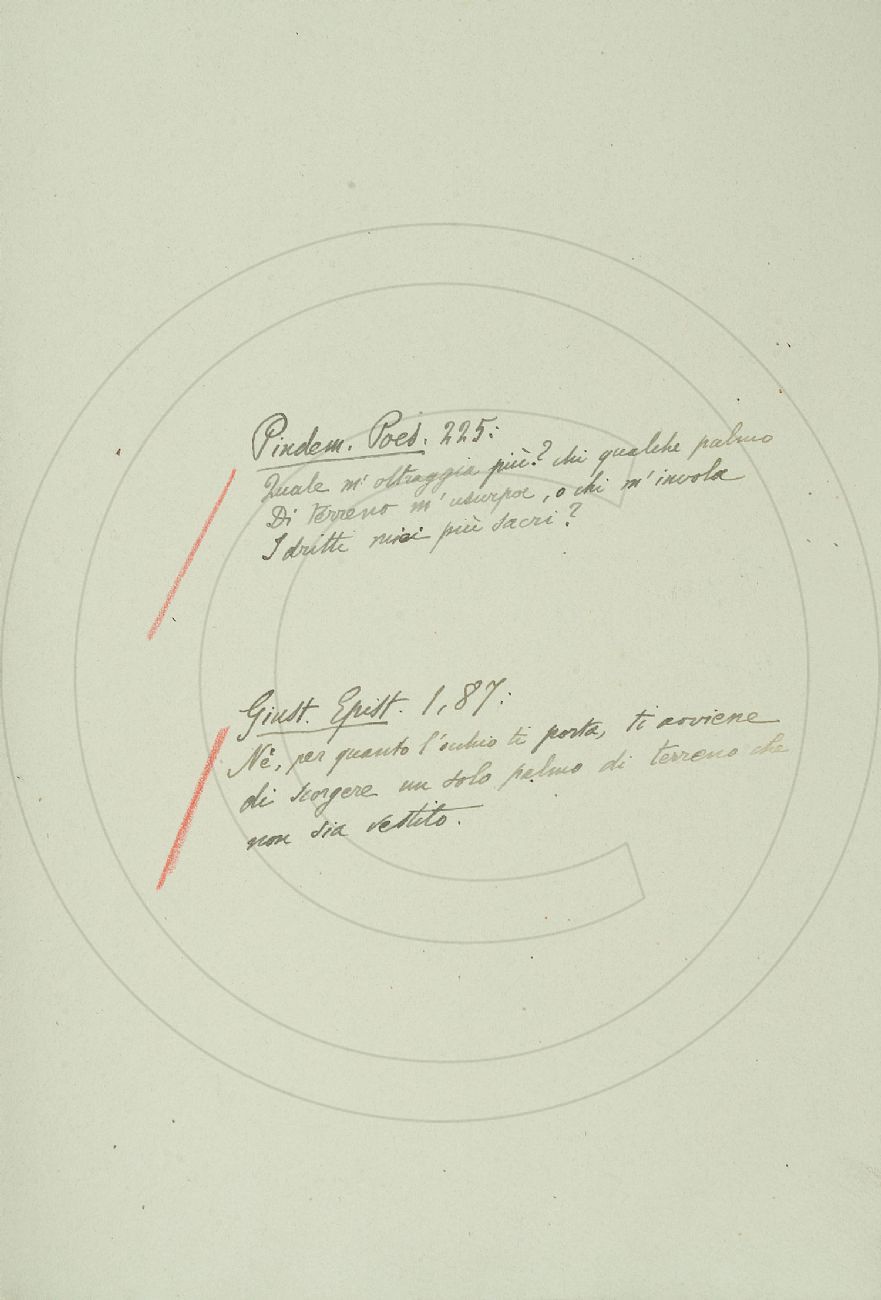 Pindem. Poes. 225:
Quale m'oltraggia più? chi qualche palmo
Di terreno m'usurpa, o chi m'invola
I dritti miei più sacri?
Giust. Epist. 1,87:
Nè, per quanto l'occhio ti porta, ti avviene
di scorgere un solo palmo di terreno che
non sia vestito.